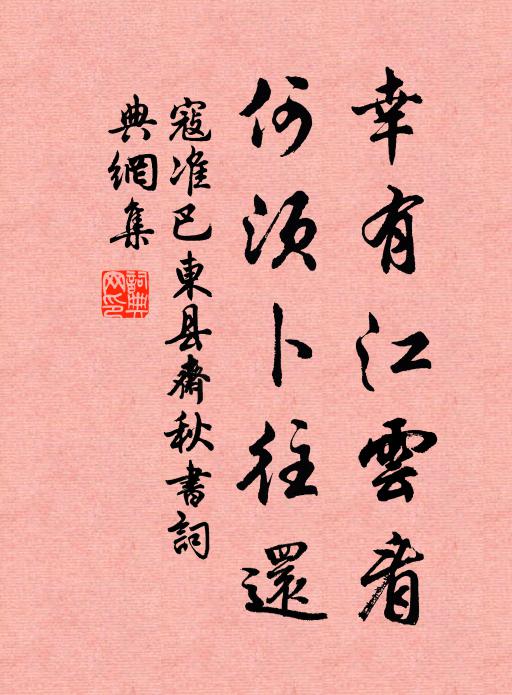 幸有江雲看
何須卜往還
寇准巴東县齋秋書詞
典網集
詞典网印